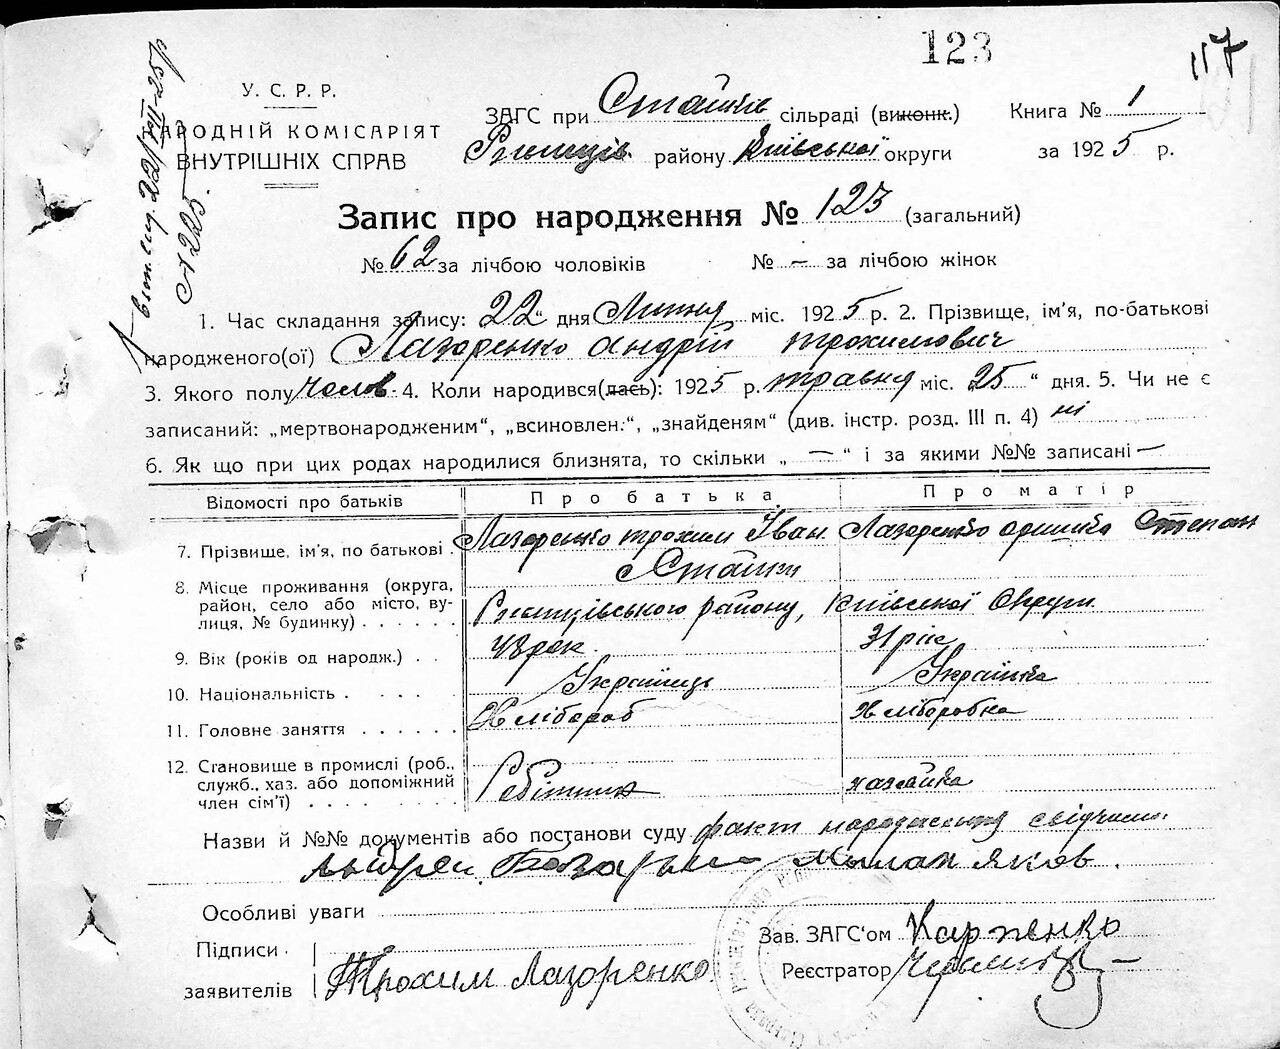 123
117
У. С. Р. Р.
НАРОДНІЙ КОМІСАРІЯТ
ВНУТРІШНІХ СПРАВ
ЗАГС при Стайків сільраді (виконк.) Книга № 1
Ржищів. району Київської округи за 1925 р.
вит. 22/VII-25 р
№ 225.
Запис про народження № 123 (загальний)
№ 62 за лічбою чоловіків № — за лічбою жінок
1. Час складання запису: 22 „ дня Липня міс. 1925 р. 2. Прізвище, ім'я, по-батькові
народженого(ої) Лазоренко Андрій Трохимович
3. Якого полу чолов 4. Коли народився(лась): 1925 р. травня міс. 25 “ дня. 5. Чи не є
записаний: „мертвонародженим“, „всиновлен.“, „знайденям“ (див. інстр. розд. III п. 4) ні
6. Як що при цих родах народилися близнята, то скільки „ — “ і за якими №№ записані —
Відомості про батьків Про батька Про матір
7. Прізвище, ім'я, по батькові . Лазоренко Трохим Іван. Лазоренко Степан
8. Місце проживання (округа, район, село або місто, вулиця, № будинку) . . . . . . Стайки
Ржищівського району, Київської Округи
9. Вік (років од народж.) . . 43 рок. 31 рік
10. Національність . . . . . Українець Українка
11. Головне заняття . . . . . . Хлібороб Хліборобка
12. Становище в промислі (роб., служб., хаз. або допоміжний член сім'ї) . . . . Робітник хазяйка
Назви й №№ документів або постанови суду факт народження свідчили:
Андрей Яков.
Особливі уваги
Підписи
заявителів Трохим Лазоренко
Зав. ЗАГС'ом Карпенко
Реєстратор